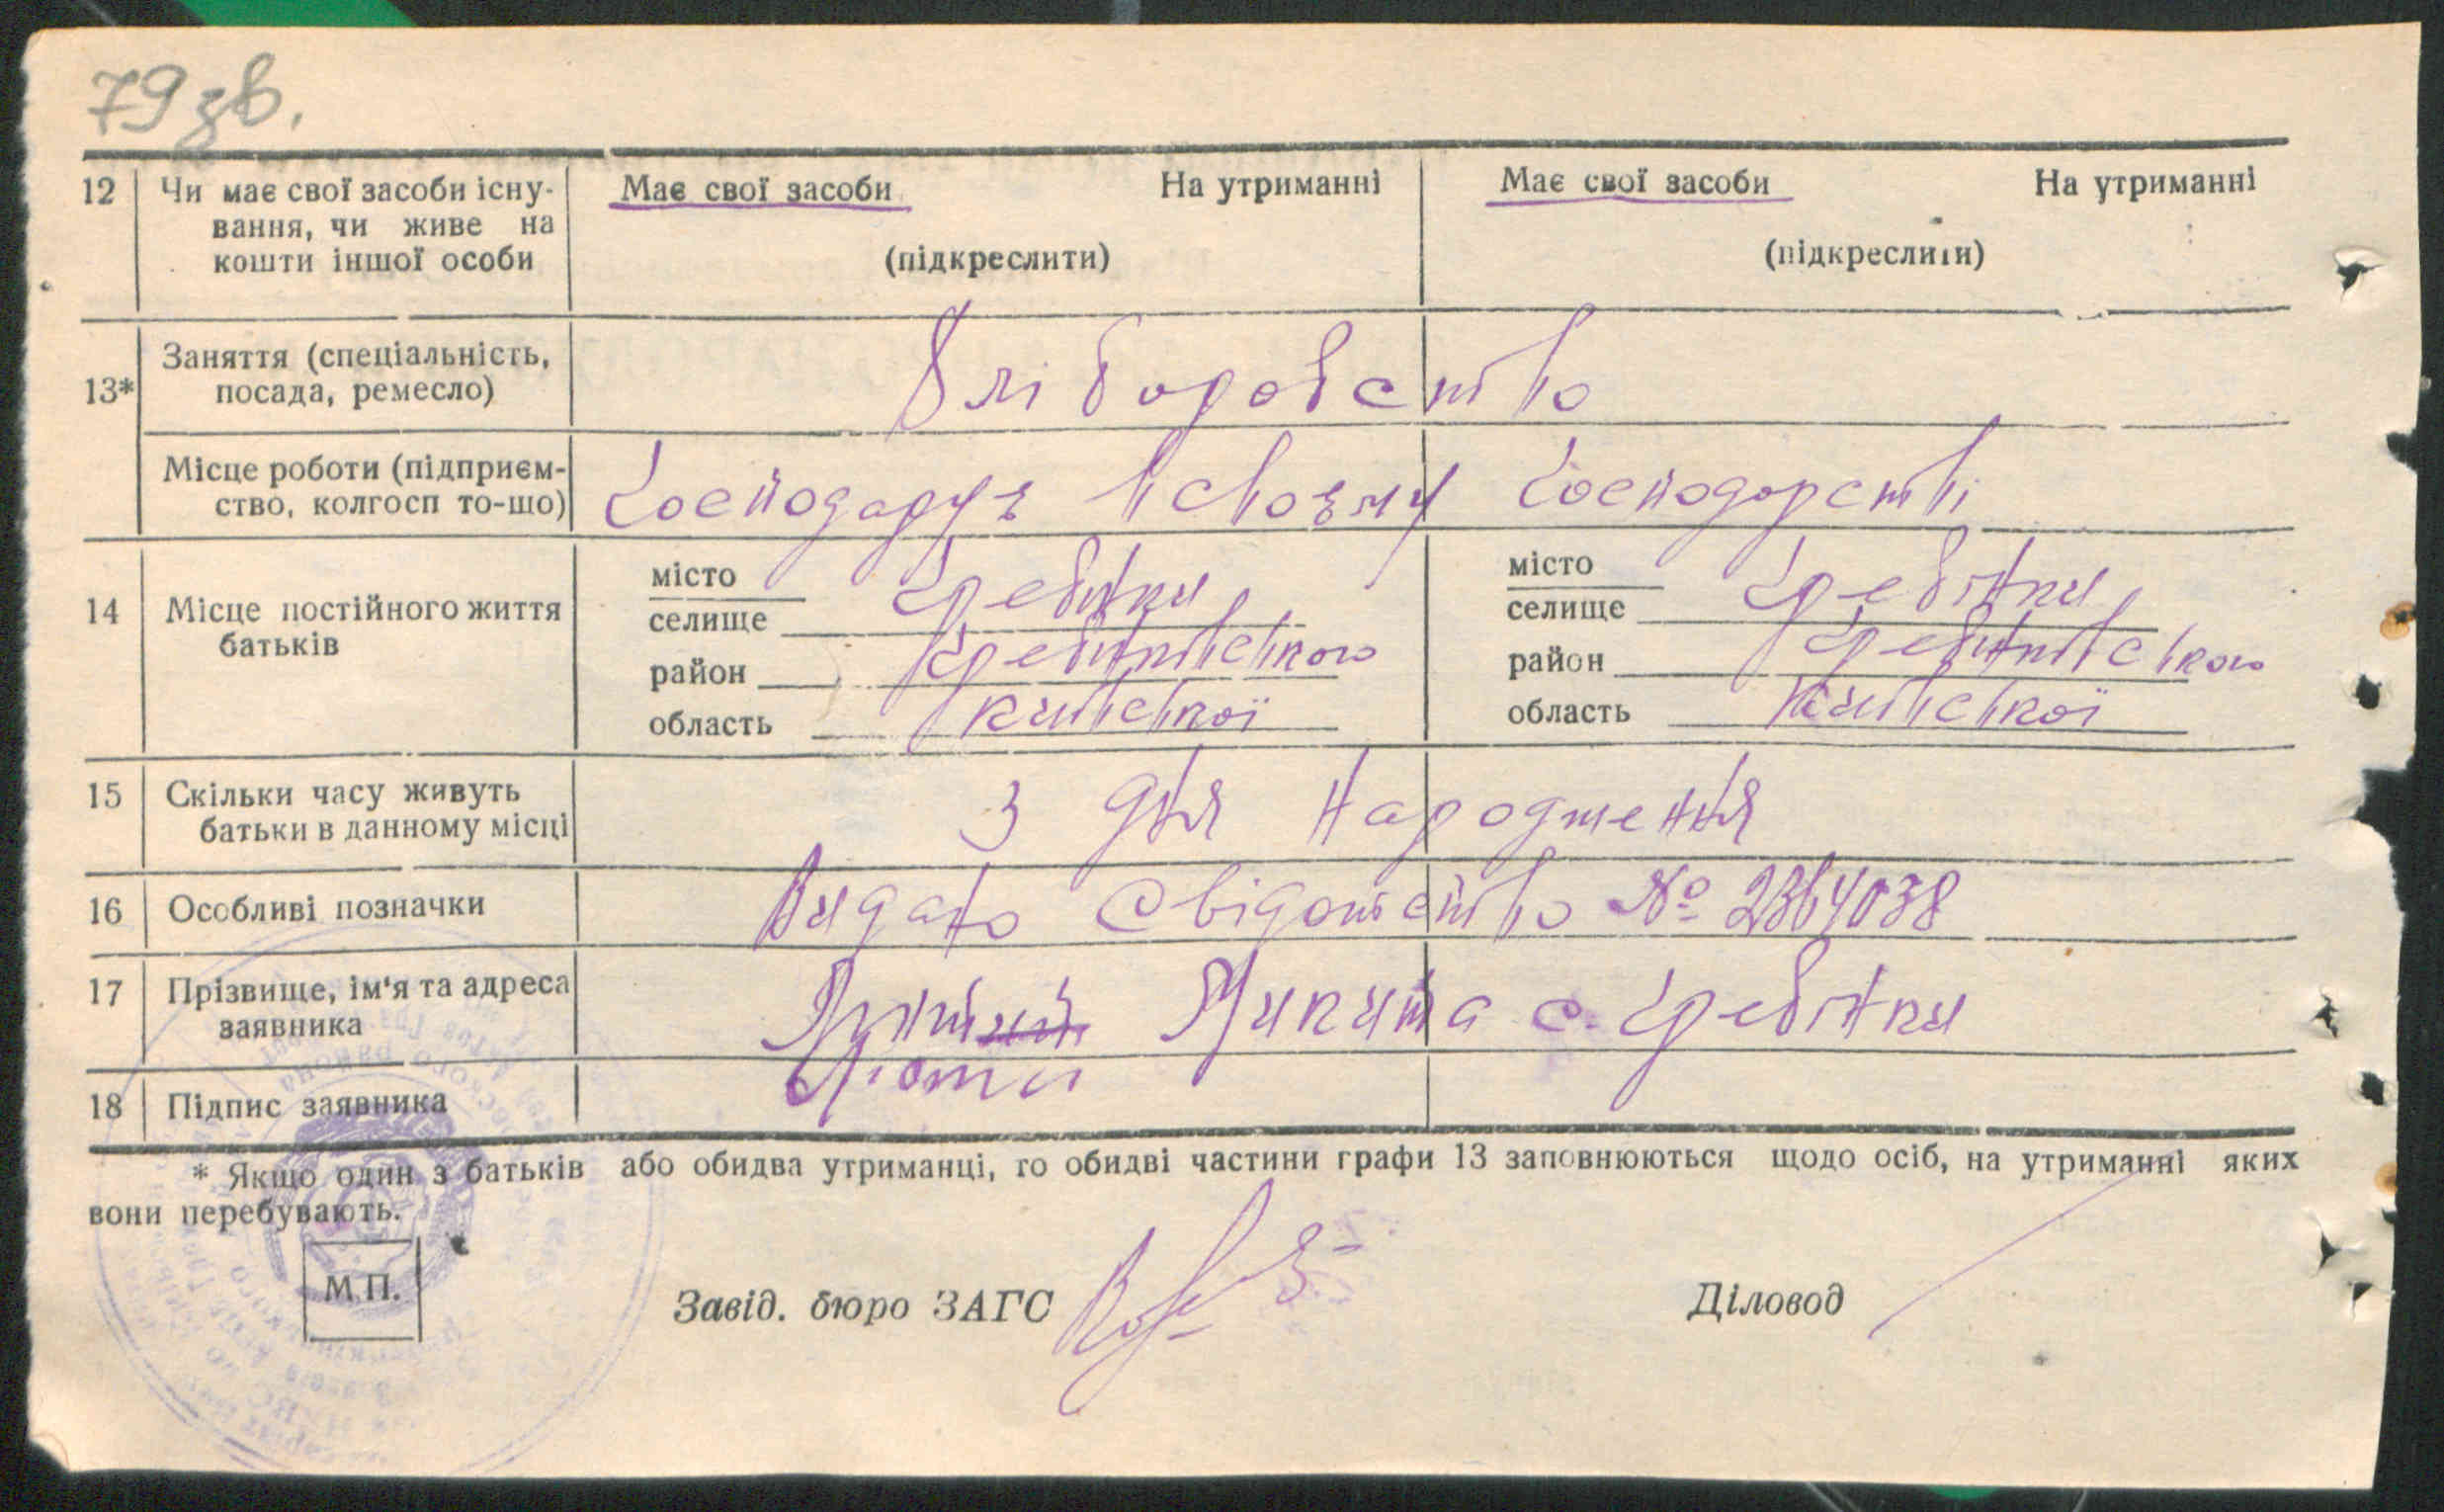 79 зв.
12 Чи має свої засоби існу- Має свої засоби На утриманні Має свої засоби На утриманні
вання, чи живе на
кошти іншої особи (підкреслити) (підкреслити)
Заняття (спеціальність,
13* посада, ремесло) Хліборобство
Місце роботи (підприєм-
ство, колгосп то-що) Господарує в своєму господарстві
місто Гребінки місто Гребінки
14 Місце постійного життя селище селище
батьків
район Гребінківського район Гребінківського
область Київської область Київської
15 Скільки часу живуть З дня народження
батьки в данному місці
16 Особливі позначки Видано Свідотство № 2364038
17 Прізвище, ім'я та адреса Микита с. Гребінки
заявника
18 Підпис заявника
* Якщо один з батьків або обидва утриманці, то обидві частини графи 13 заповнюються щодо осіб, на утриманні яких
вони перебувають.
М.П.
Завід. бюро ЗАГС Діловод